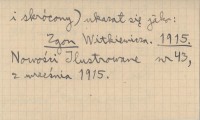 i skrócony) ukazał się jako:
Zgon Witkiewicza. 1915.
Nowości Ilustrowane nr 43,
z września 1915.